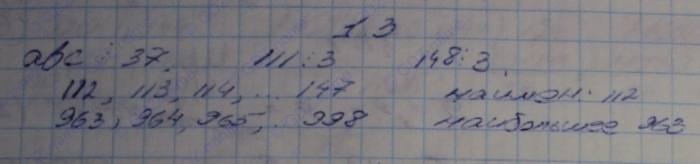 1.3
abc ⋮ 37. 111 : 3 148 : 3.
112, 113, 114, ... 147 наимен: 112
963, 964, 965, .. 998 наибольшее 963